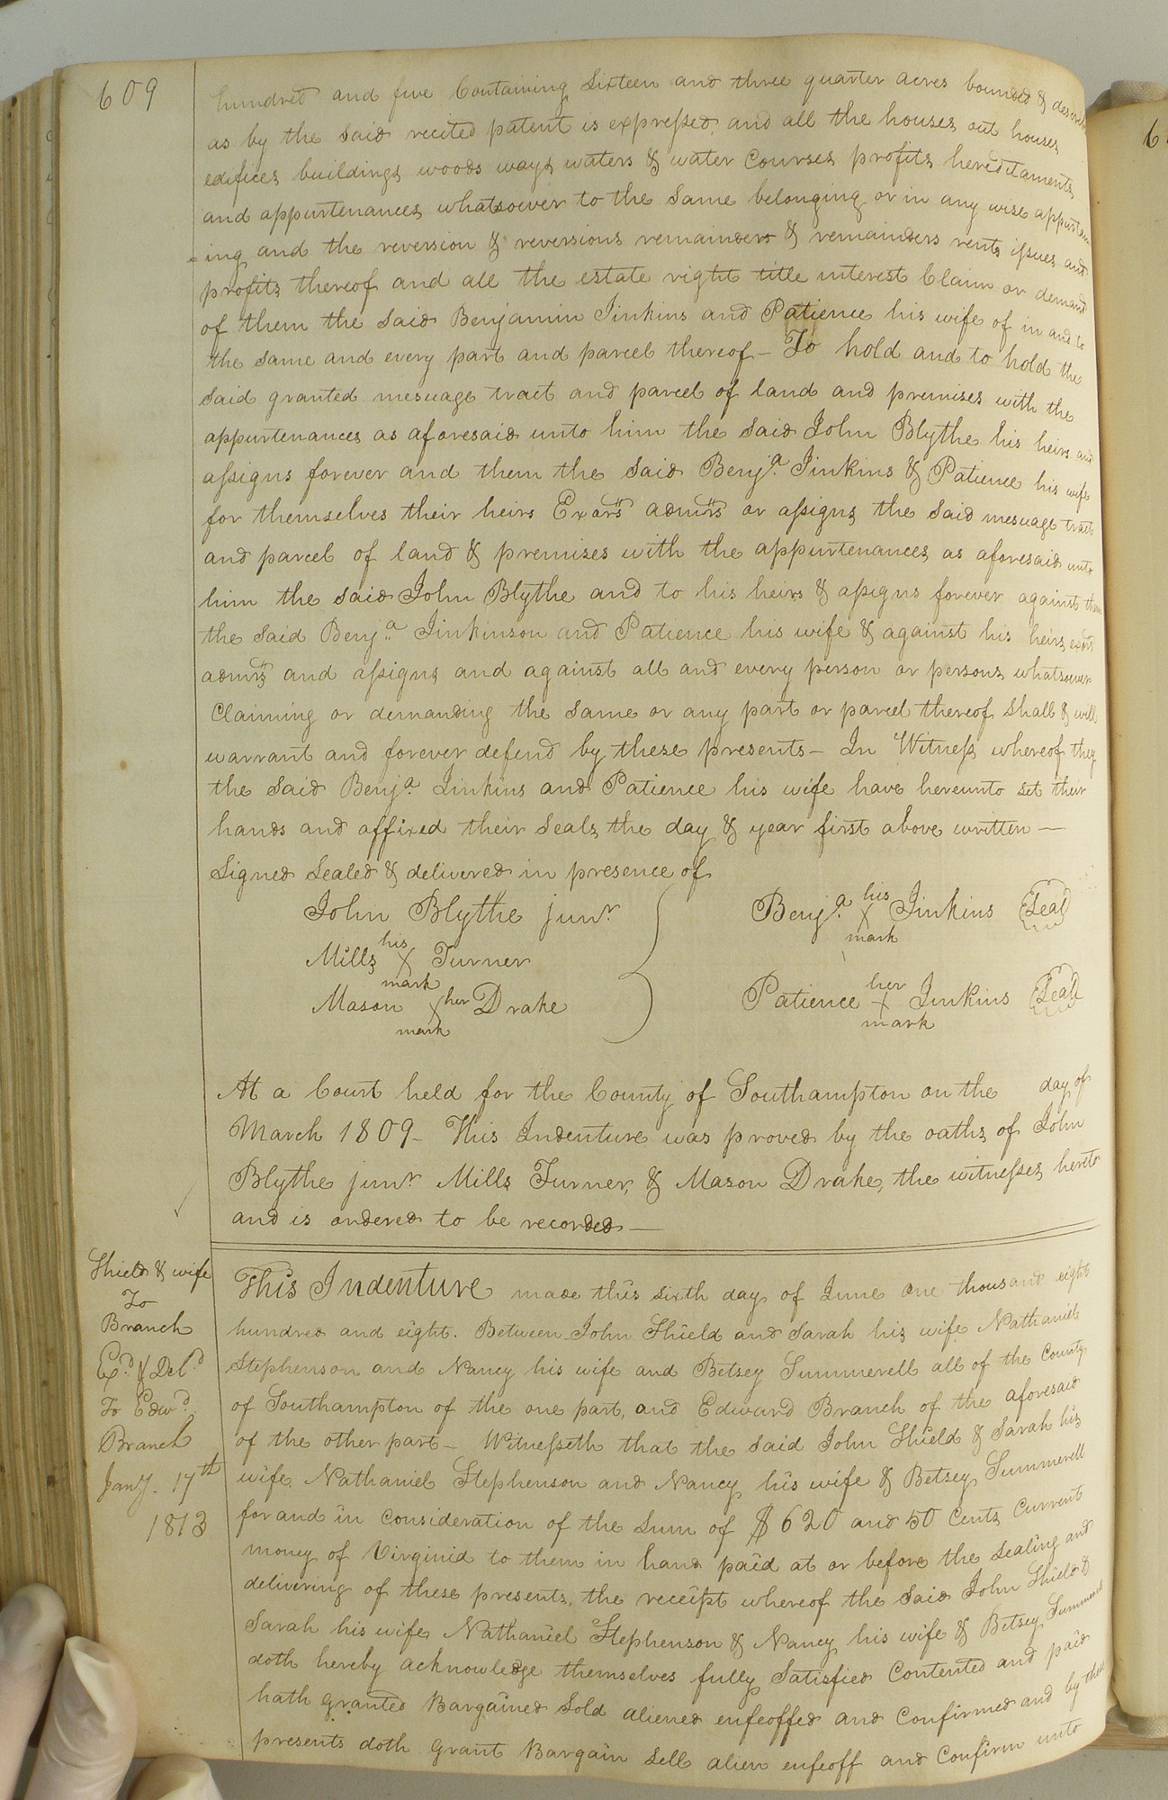 609
hundred and five Containing Sixteen and three quarter acres bounded & described
as by the said recited patent is expressed, and all the houses out houses
edifices buildings woods ways waters & water courses profits hereditaments
and appurtenances whatsoever to the same belonging or in any wise appurtain
=ing and the reversion & reversions remainders & remainders rents issues and
profits thereof and all the estate right title interest Claim or demand
of them the said Benjamin Jinkins and Patience his wife of in and to
the same and every part and parcel thereof - To hold and to hold the
said granted mesuage tract and parcel of land and premises with the
appurtenances as aforesaid unto him the said John Blythe his heirs and
assigns forever and them the said Benja. Jinkins & Patience his wife
for themselves their heirs Exors admrs or assigns the said mesuage tract
and parcel of land & premises with the appurtenances as aforesaid unto
him the said John Blythe and to his heirs & assigns forever against them
the said Benja. Jinkinson and Patience his wife & against his heirs exors
admrs and assigns and against all and every person or persons whatsoever
Claiming or demanding the same or any part or parcel thereof shall & will
warrant and forever defend by these presents - In Witness whereof they
the said Benja. Jinkins and Patience his wife have hereunto set their
hands and affixed their seals the day & year first above written —
Signed Sealed & delivered in presence of
John Blythe junr
Mills his X mark Turner
Mason her X mark Drake
Benja. his X mark Jinkins Seal
Patience her X mark Jinkins Seal
At a Court held for the County of Southampton on the day of
March 1809 - This Indenture was proved by the oaths of John
Blythe junr Mills Turner, & Mason Drake, the witnesses hereto
and is ordered to be recorded —
Shield & wife
To
Branch
Exd. & Deld
To Edwd.
Branch
Jany. 17th
1813
This Indenture made this sixth day of June one thousand eight
hundred and eight. Between John Shield and Sarah his wife Nathaniel
Stephenson and Nancy his wife and Betsey Summerell all of the County
of Southampton of the one part, and Edward Branch of the aforesaid
of the other part - Witnesseth that the said John Shield & Sarah his
wife Nathaniel Stephenson and Nancy his wife & Betsey Summerell
for and in consideration of the sum of $620 and 50 Cents Current
money of Virginid to them in hand paid at or before the sealing and
delivering of these presents, the receipt whereof the said John Shield &
Sarah his wife Nathaniel Stephenson & Nancy his wife & Betsey Summerell
doth hereby acknowledge themselves fully Satisfied Contented and paid
hath granted Bargained Sold aliened enfeoffed and Confirmed and by these
presents doth grant Bargain sell alien enfeoff and Confirm unto